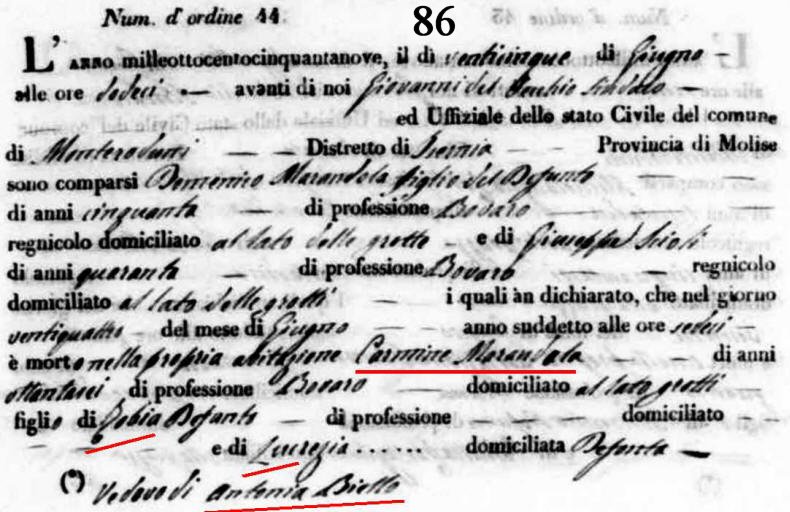 Num. d'ordine 44. 86
L'ANNO milleottocentocinquantanove, il dì venticinque di Giugno –
alle ore sedeci – avanti di noi Giovanni del Vecchio Sindaco –
ed Uffiziale dello stato Civile del comune
di Monteroduni – – Distretto di Isernia – Provincia di Molise
sono comparsi Domenico Marandola figlio del Defunto –
di anni cinquanta – di professione Bovaro –
regnicolo domiciliato al lato delle grotte e di Giuseppe Scioli
di anni quaranta di professione Bovaro regnicolo
domiciliato al lato delle grotti – i quali àn dichiarato, che nel giorno
ventiquattro – del mese di Giugno – anno suddetto alle ore sedeci –
è morto nella propria abitazione Carmine Marandola – di anni
ottantasei di professione Bovaro domiciliato al lato grotti
figlio di Tobia Defunto – di professione domiciliato –
– – e di Lucrezia ...... domiciliata Defonta –
(*) Vedovo di Antonia Biello